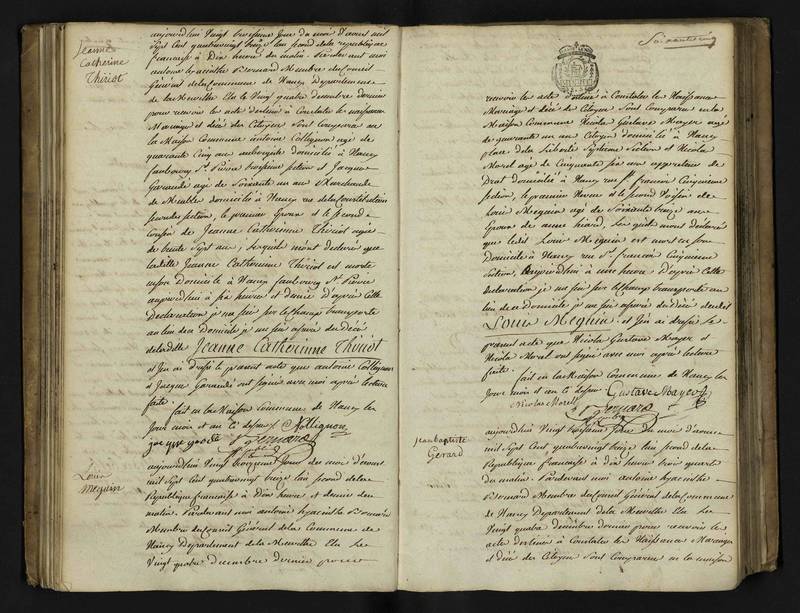 Jeanne
Catherine
Thiriot
aujourdhui Vingt troisieme Jour du mois d'aoust mil
Sept Cent quatrevingt treize l'an second dela republique
francaise à Dix heures du matin Pardevant moi
antoine hyacinthe Membre du Conseil
Général dela Commune de Nancy Departement
de la Meurthe Elu le Vingt quatre decembre dernier
pour recevoir les actes destinés à Constater les naissances
Mariages et décès des Citoyens Sont Comparus en
la Maison Commune antoine Collignon agé de
quarante Cinq ans aubergiste domicilié à Nancy
faubourg St Pierre troisieme section et Jacques
agé de Soixante un ans Marchand
de Meubles domicilié à Nancy rue dela Constitution
section, le premier et le second
cousin de Jeanne Catherinne Thiriot agée
de trente Sept ans, lesquels m'ont declaré que
ladite Jeanne Catherinne Thiriot est morte
en son Domicile à Nancy faubourg St Pierre
aujourdhui à six heures et demie d'après Cette
Declaration je me suis sur le champ transporté
au lieu du Domicile je me suis assuré du Décès
deladite Jeanne Catherinne Thiriot
et J'en ai dressé le present acte que antoine Collignon
et Jacques ont signé avec moi après lecture
faite. fait en la Maison Commune de Nancy les
Jour mois et an Ci dessus Collignon
Louis
Meguin
aujourdhui Vingt troisieme Jour du mois d'aoust
mil Sept Cent quatrevingt treize l'an second dela
Republique francaise à Dix heures et demie du
matin. Pardevant moi antoine hyacinthe
Membre du Conseil Général de la Commune de
Nancy Departement de la Meurthe Elu le
Vingt quatre decembre dernier pour
recevoir les actes destinés à Constater les Naissances
Mariages et décès des Citoyens Sont Comparus en la
Maison Commune Nicolas Gustave Mayer agé
de quarante un ans Citoyen domicilié à Nancy
place dela Liberté Septieme Section et Nicolas
Morel agé de Cinquante six ans
domicilié à Nancy rue St francois Cinquieme
section, le premier Neveu et le second Voisin de
Louis Meguin agé de Soixante treize ans
Lesquels m'ont declaré
que ledit Louis Meguin est mort en son
Domicile à Nancy rue St francois Cinquieme
section, aujourdhui à une heure d'après Cette
declaration je me suis sur le champ transporté au
lieu de ce domicile je me suis assuré du décès dudit
Louis Meguin. et J'en ai dressé le
present acte que Nicolas Gustave Mayer et
Nicolas Morel ont signé avec moi après lecture
faite.
fait en la Maison Commune de Nancy les
Jour mois et an Ci dessus Gustave Mayer
Nicolas Morel
Jean baptiste
Gerard
aujourdhui Vingt troisieme Jour du mois d'aoust
mil Sept Cent quatrevingt treize l'an second dela
Republique francaise à dix heures trois quarts
du matin. Pardevant moi antoine hyacinthe
Membre du Conseil Général de la Commune
de Nancy Departement de la Meurthe Elu le
Vingt quatre decembre dernier pour recevoir les
actes destinés à Constater les Naissances Mariages
et décès des Citoyens Sont Comparus en la maison